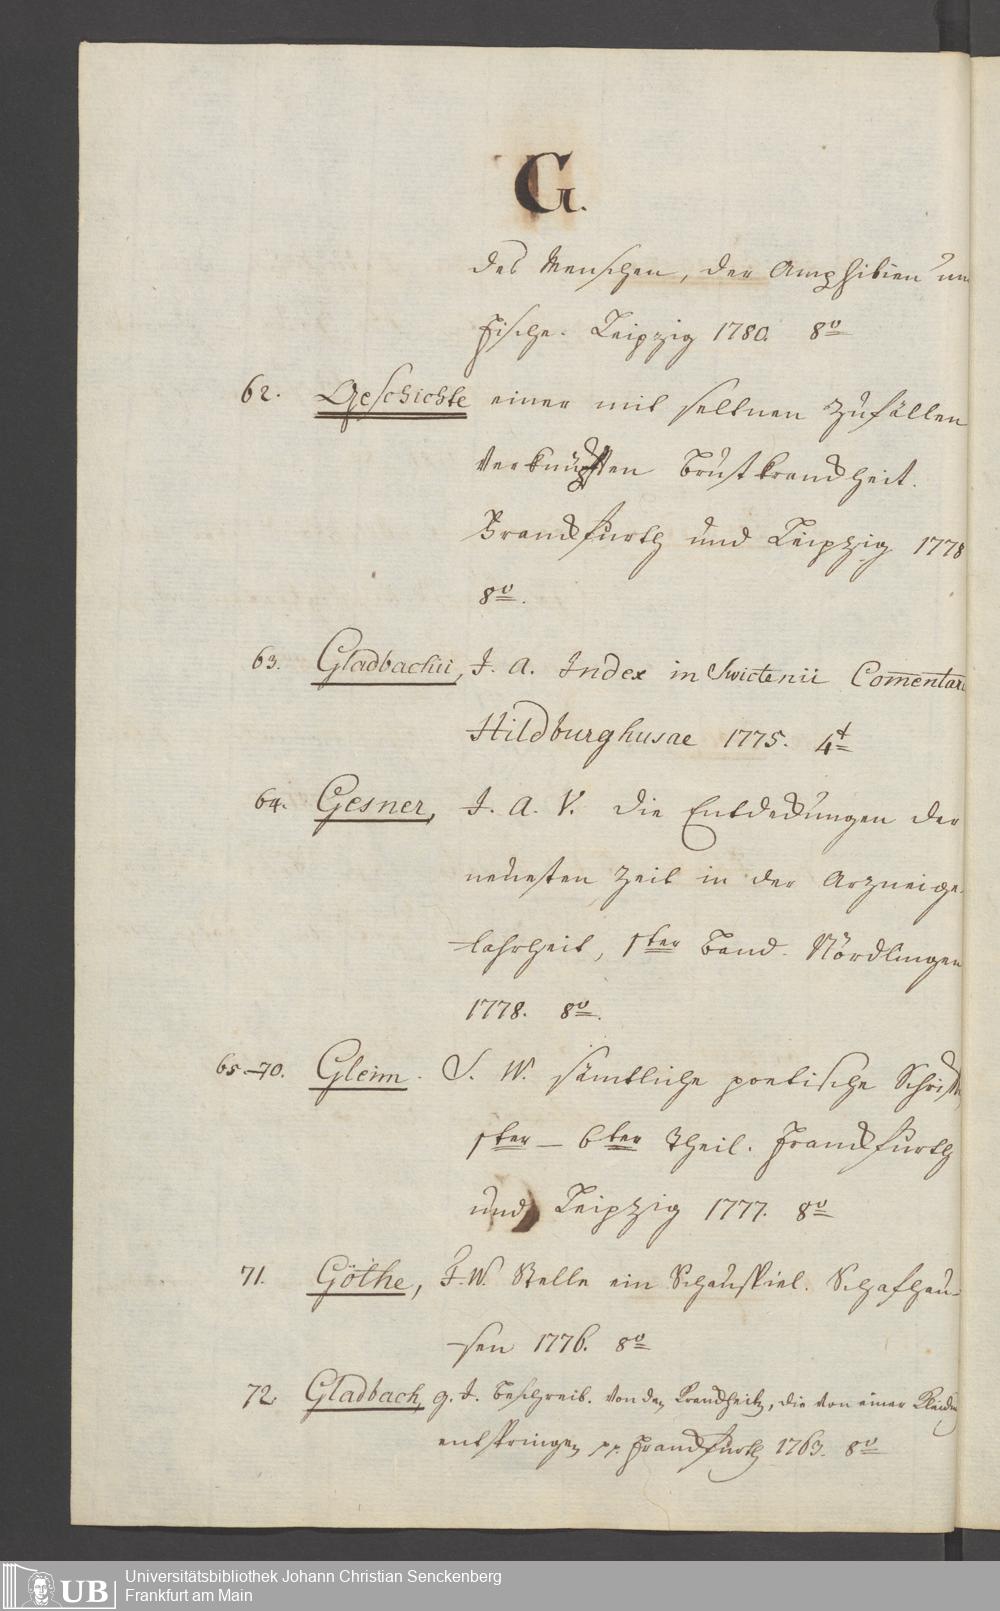 G.
des Menschen, der Amphibien un
Fische. Leipzig 1780. 8º
62. Geschichte einer mit seltnen Zufällen
verknüpften Brustkrandheit.
Frandfurth und Leipzig 1778
8º.
63. Gladbachii, J. A. Index in Swietenii Com̄entar
Hildburghusae 1775. 4t
64. Gesner, J. A. V. die Entdeckungen der
neuesten Zeit in der Arzneige-
lahrheit, 1ter Band. Nördlingen
1778. 8º.
65–70. Gleim. S. W. sämtliche poetische Schrift
1ter – 6ter Theil. Franckfurth
und Leipzig 1777. 8º
71. Göthe, J. W. Stella ein Schauspiel. Schafhau-
sen 1776. 8º
72. Gladbach, g. J. beschreib. von den Kranckheiten, die von einer
entspringen pp. Franckfurth 1763. 8º
UB Universitätsbibliothek Johann Christian Senckenberg
Frankfurt am Main